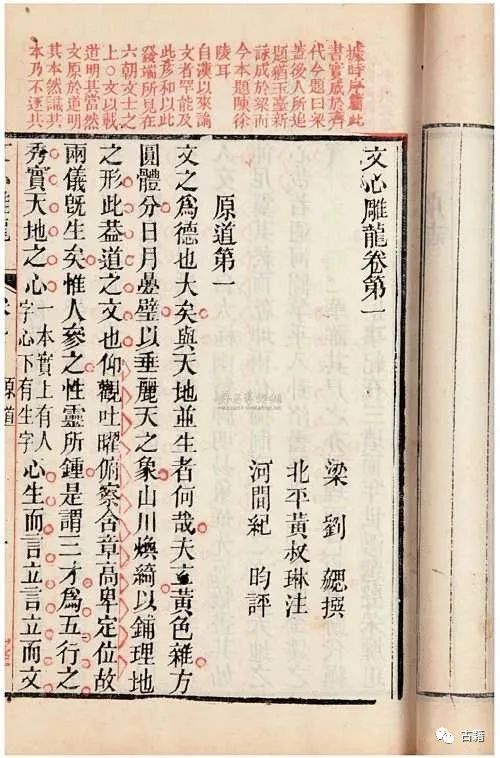 據時序篇此
書實成於齊
代今題曰梁
蓋後人所追
題猶玉臺新
詠成於梁而
今本題陳徐
陵耳
自漢以來論
文者罕能及
此彥和以此
發端所見在
六朝文士之
上○文以載
道明其當然
文原於道明
其本然識其
本乃不逐其
文心雕龍卷第一
梁 劉 勰撰
北平黃叔琳注
河間紀 昀評
原道第一
文之為德也大矣與天地並生者何哉夫玄黃色雜方
圓體分日月疊璧以垂麗天之象山川煥綺以鋪理地
之形此蓋道之文也仰觀吐曜俯察含章高卑定位故
兩儀既生矣惟人參之性靈所鍾是謂三才為五行之
秀實天地之心一本實上有人字心下有生字心生而言立言立而文
原道
古籍